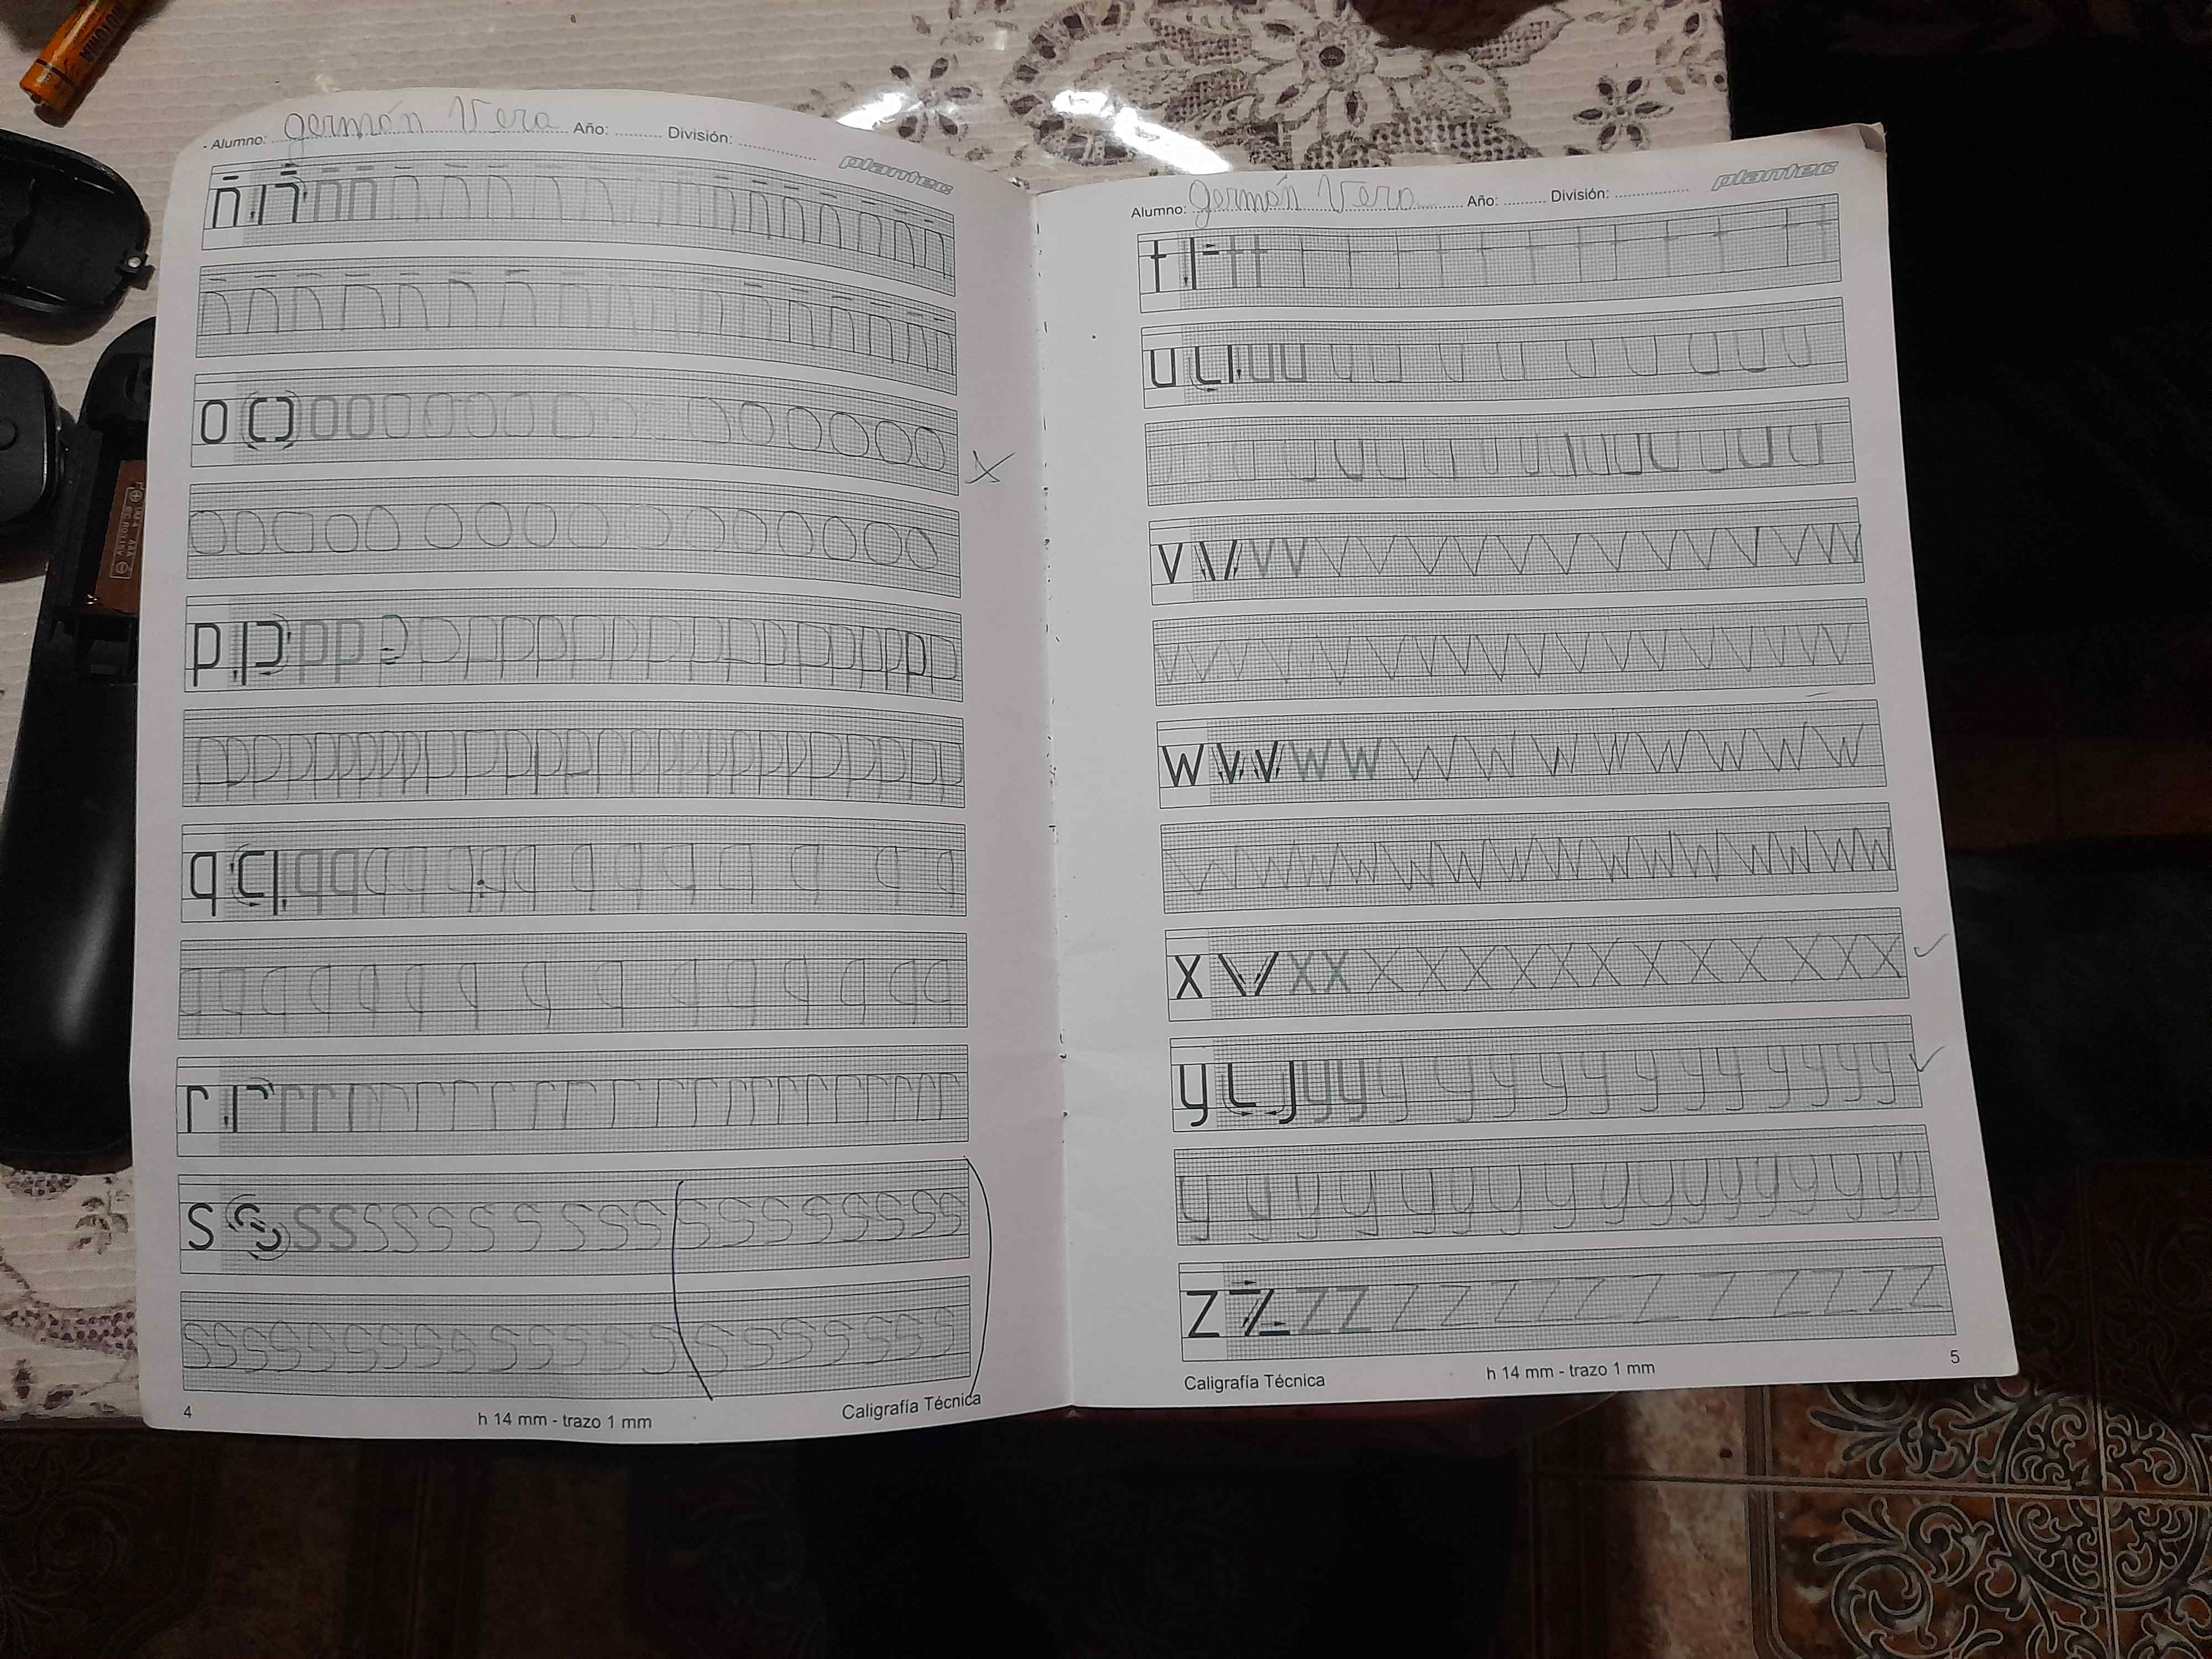 - Alumno: germán Vera Año: .......... División: ..................
plantec
ñ ñ ñ ñ ñ ñ ñ ñ ñ ñ ñ ñ ñ ñ ñ ñ ñ ñ
ñ ñ ñ ñ ñ ñ ñ ñ ñ ñ ñ ñ ñ ñ ñ ñ
o o o o o o o o o o o o o o o o
o o o o o o o o o o o o o o o o
p p p p p p p p p p p p p p p p p p
p p p p p p p p p p p p p p p p p p p p p p
q q q q q q q q q q q q q q q q
q q q q q q q q q q q q q q q
r r r r r r r r r r r r r r r r r r
s s s s s s s s s s s s s s s s s s s
s s s s s s s s s s s s s s s s s s s s
4 h 14 mm - trazo 1 mm Caligrafía Técnica
Alumno: germán Vera Año: .......... División: ..................
plantec
t t t t t t t t t t t t t t
u u u u u u u u u u u u u u
u u u u u u u u u u u u u
v v v v v v v v v v v v v v v
v v v v v v v v v v v v v v v
w w w w w w w w w w w w
w w w w w w w w w w w w w w
x x x x x x x x x x x x x x x
y y y y y y y y y y y y y y y
y y y y y y y y y y y y y y y y y
z z z z z z z z z z z z z z
Caligrafía Técnica h 14 mm - trazo 1 mm 5